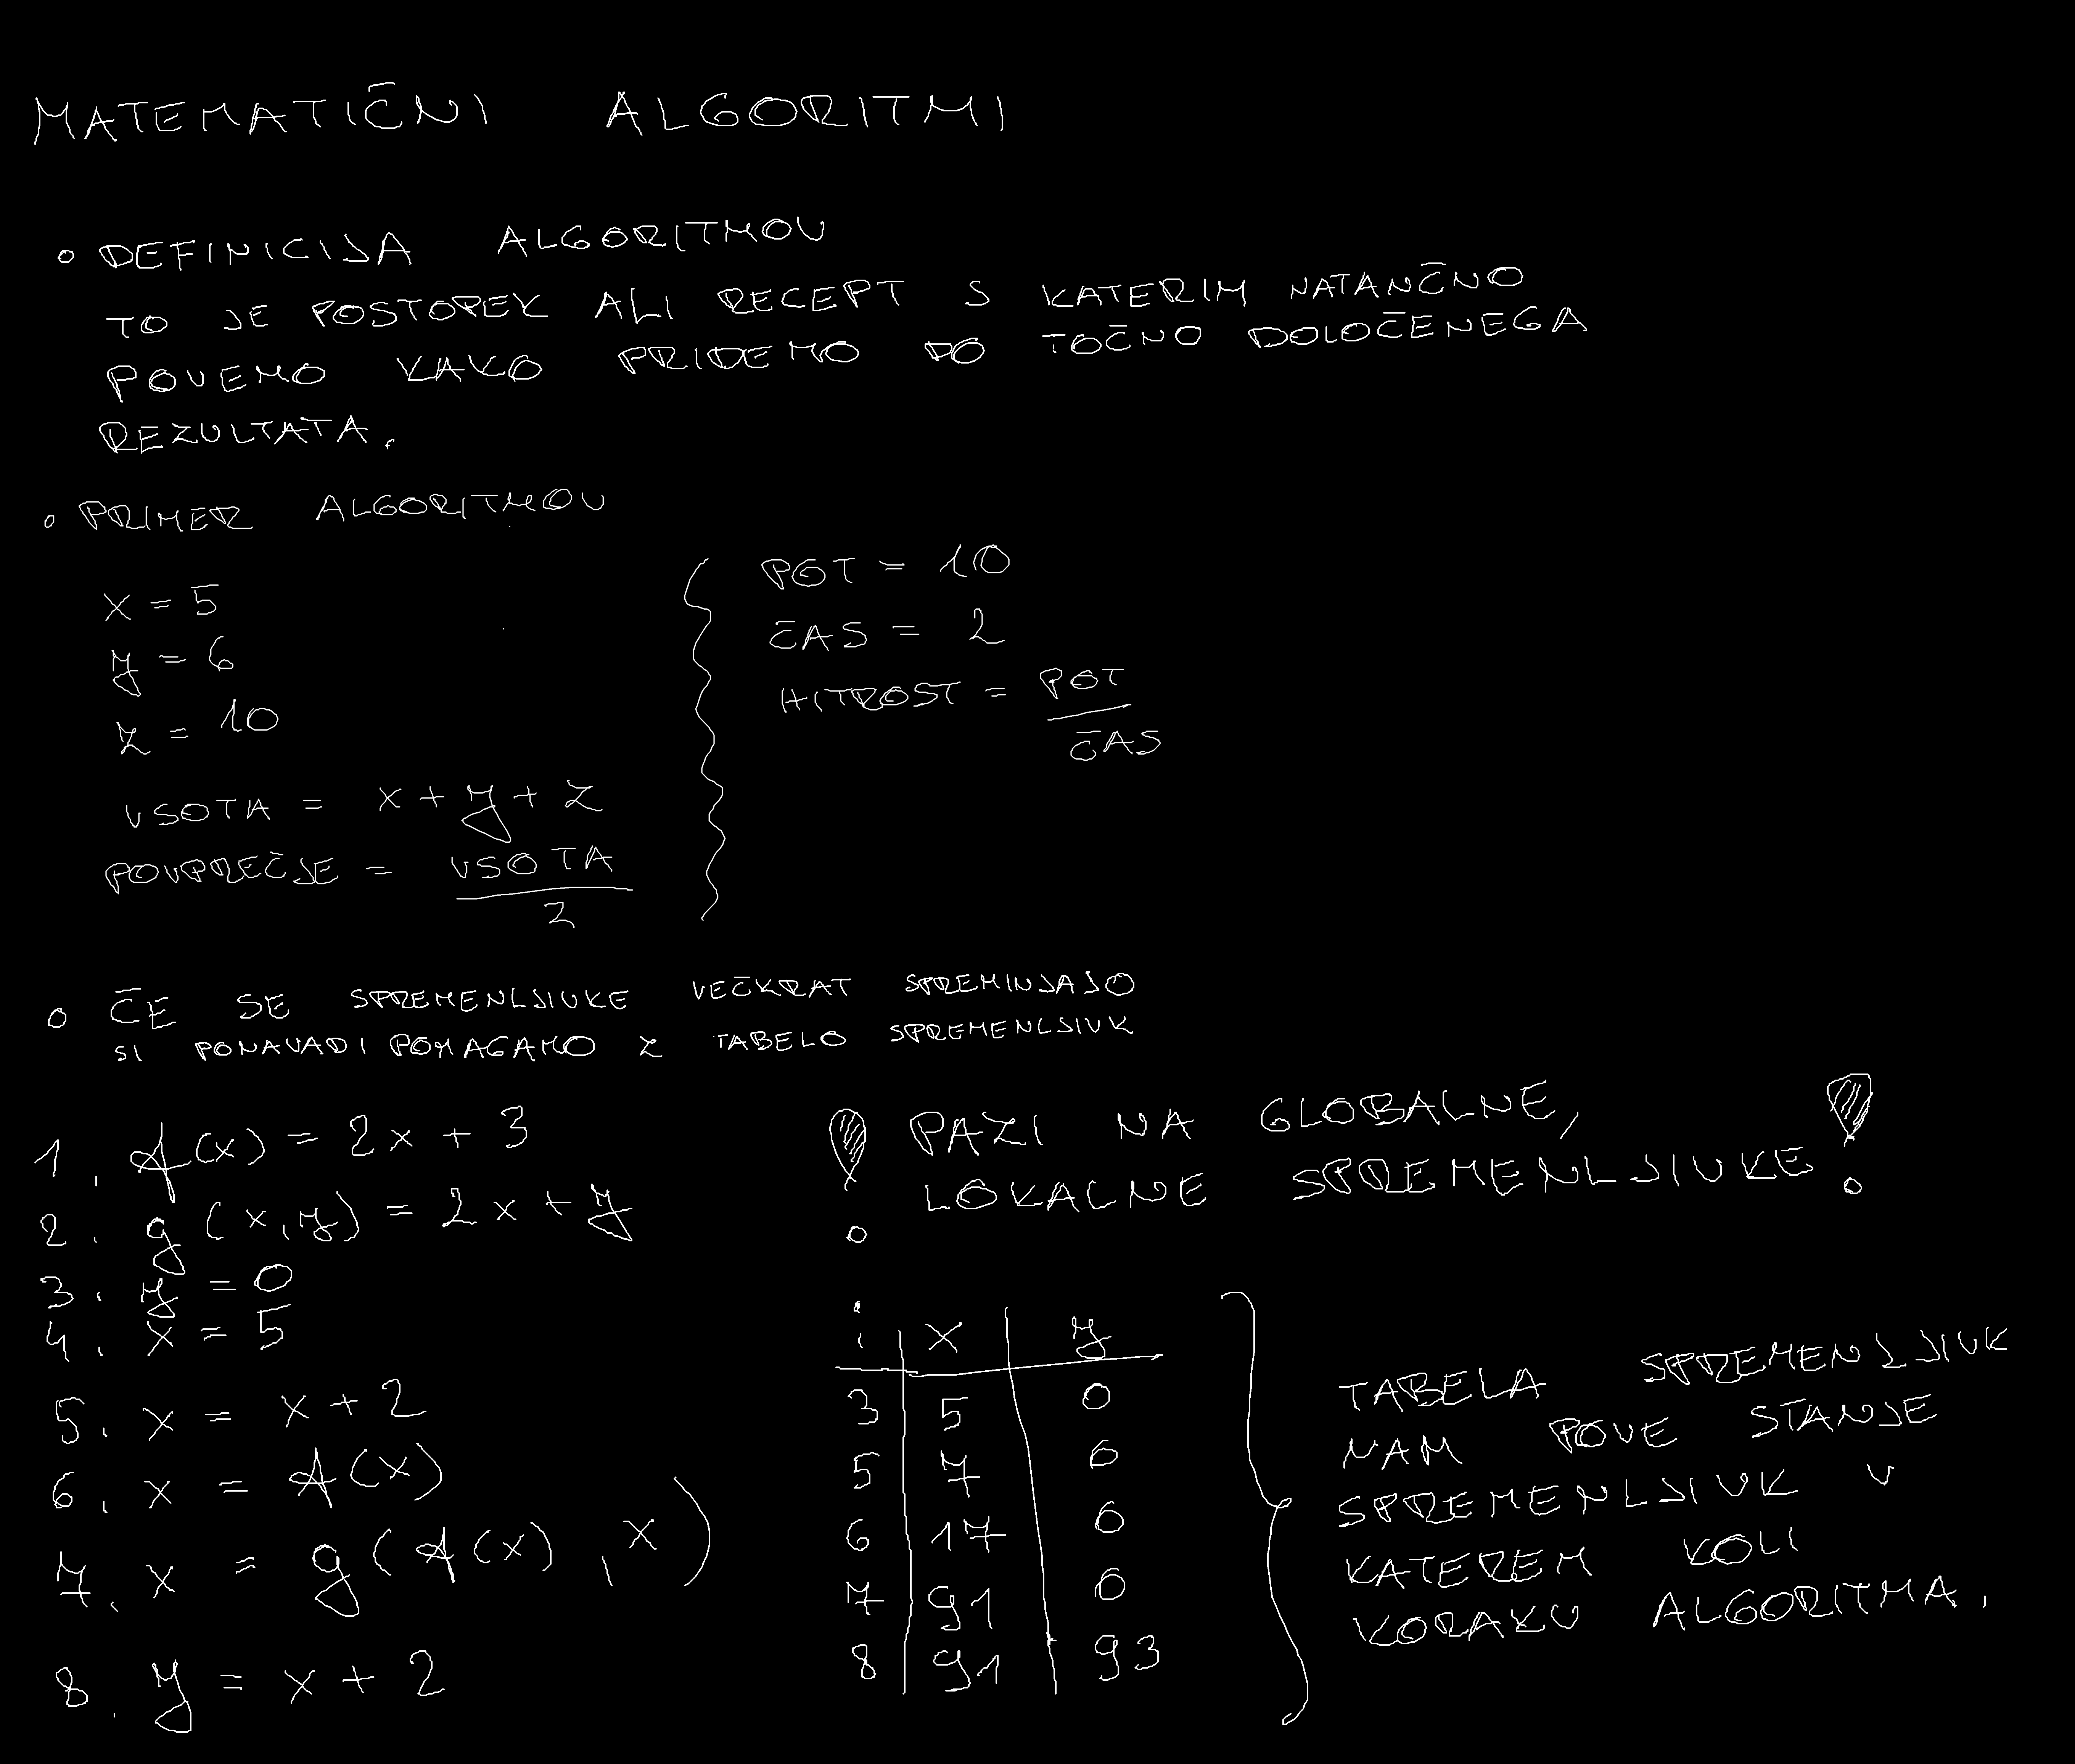 MATEMATIČNI ALGORITMI
• DEFINICIJA ALGORITMOV
TO JE POSTOPEK ALI RECEPT S KATERIM NATANČNO
POVEMO KAKO PRIDEMO DO TOČNO DOLOČENEGA
REZULTATA.
• PRIMER ALGORITMOV
x = 5
y = 6
z = 10
VSOTA = x + y + z
POVPREČJE = VSOTA / 2
POT = 10
ČAS = 2
HITROST = POT / ČAS
• ČE SE SPREMENLJIVKE VEČKRAT SPREMINJAJO
SI PONAVADI POMAGAMO Z TABELO SPREMENLJIVK
1. f(x) = 2x + 3
2. g(x,y) = 2x + y
3. y = 0
4. x = 5
5. x = x + 2
6. x = f(x)
7. x = g(f(x), x)
8. y = x + 2
! PAZI NA GLOBALNE,
LOKALNE SPREMENLJIVKE !
i x y
3 5 0
5 7 0
6 17 0
7 91 0
8 91 93
TABELA SPREMENLJIVK
NAM POVE STANJE
SPREMENLJIVK V
KATEREM KOLI
KORAKU ALGORITMA.